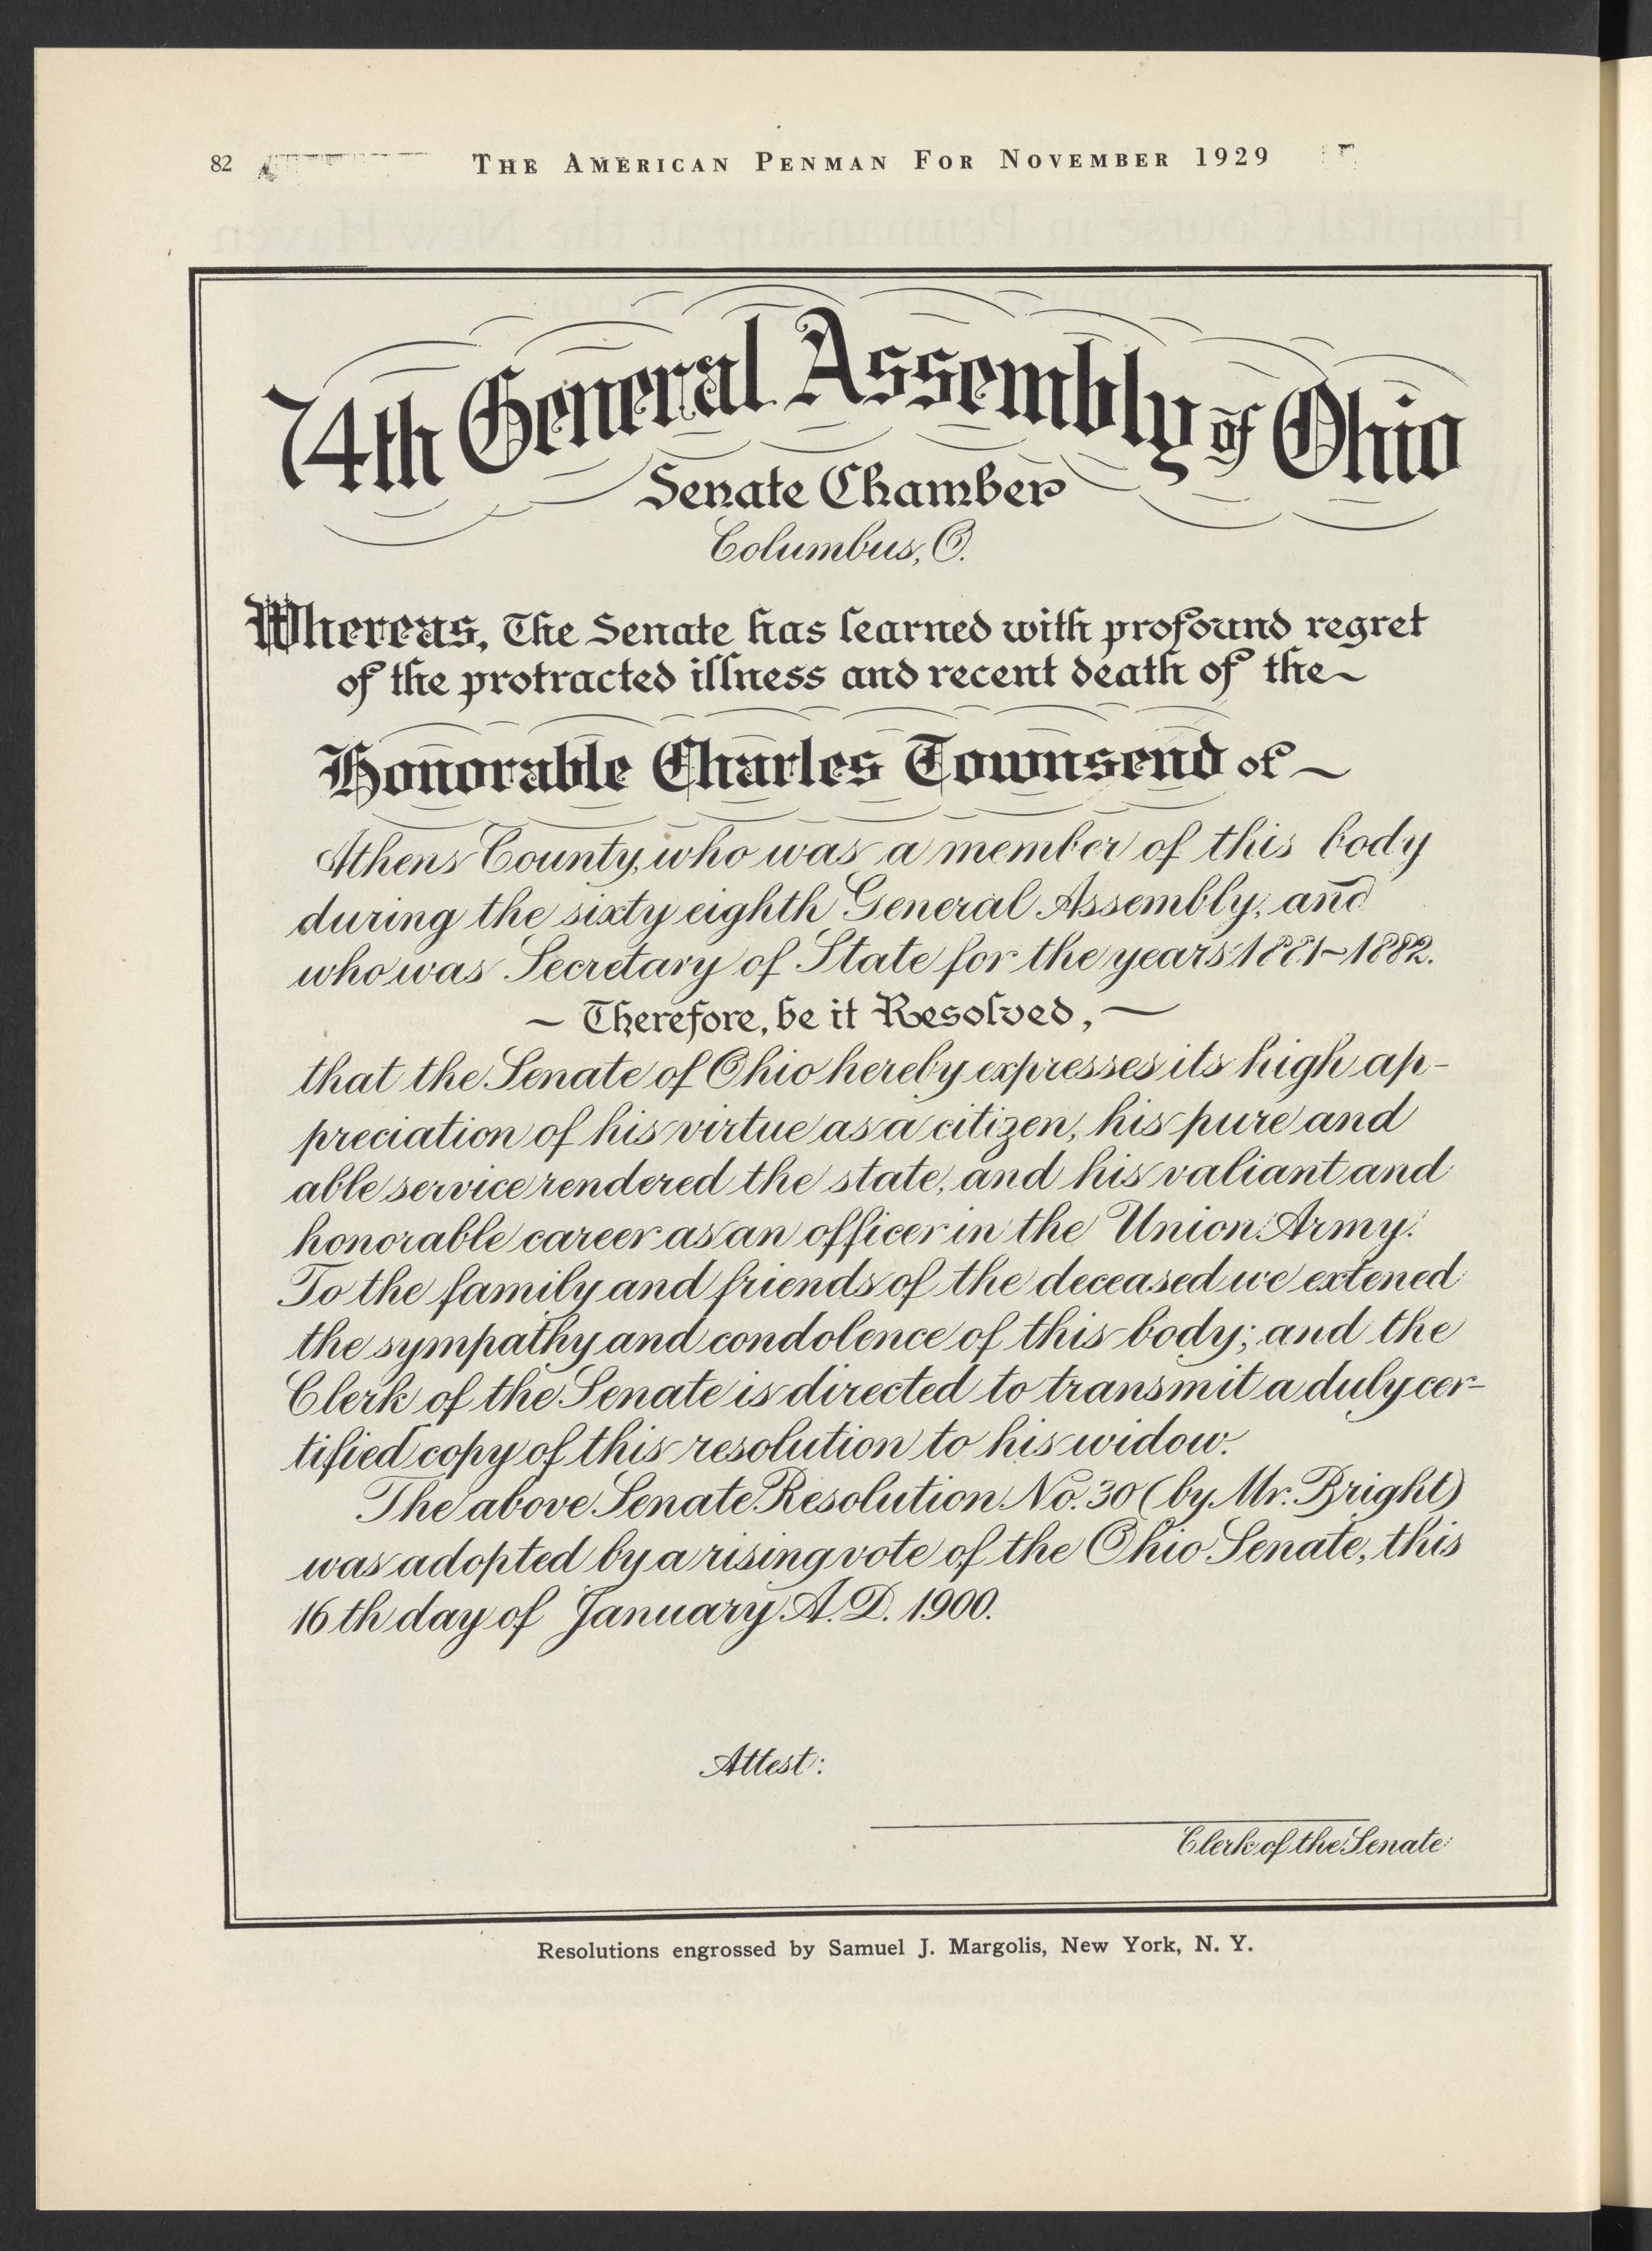 82
THE AMERICAN PENMAN FOR NOVEMBER 1929
74th General Assembly of Ohio
Senate Chamber
Columbus, O.
Whereas, The Senate has learned with profound regret
of the protracted illness and recent death of the~
Honorable Charles Townsend of~
Athens County, who was a member of this body
during the sixty eighth General Assembly, and
who was Secretary of State for the years 1881~1882.
~ Therefore, be it Resolved, ~
that the Senate of Ohio hereby expresses its high ap-
preciation of his virtue as a citizen, his pure and
able service rendered the state, and his valiant and
honorable career as an officer in the Union Army.
To the family and friends of the deceased we extened
the sympathy and condolence of this body; and the
Clerk of the Senate is directed to transmit a duly cer-
tified copy of this resolution to his widow.
The above Senate Resolution No. 30 (by Mr. Bright)
was adopted by a rising vote of the Ohio Senate, this
16th day of January A.D. 1900.
Attest:
Clerk of the Senate
Resolutions engrossed by Samuel J. Margolis, New York, N. Y.